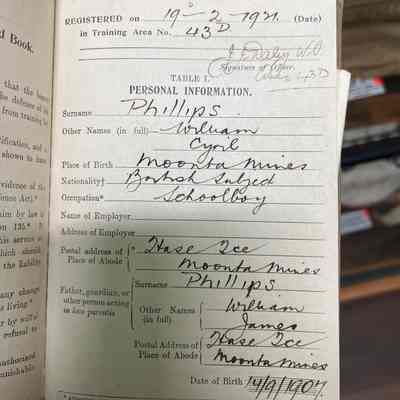 d Book.
that the bearer
the defence of the
from training for
ification, and a
shown to have
evidence of the
ence Act).*
aim by law a
on 135.* It
his service as
which should
the liability.
any change
s living
r by wilful
refusal to
authorised
punishable
REGISTERED on 19-2-1921. (Date)
in Training Area No. 43D.
W.O
Signature of Officer.
Area 43D
TABLE I.
PERSONAL INFORMATION.
Surname Phillips.
Other Names (in full) William
Cyril
Place of Birth Moonta Mines
Nationality† British Subject
Occupation* Schoolboy
Name of Employer
Address of Employer
Postal address of Place of Abode Hase Tce
Moonta Mines
Father, guardian, or other person acting in loco parentis
Surname Phillips
Other Names (in full) William
James
Postal Address of Place of Abode Hase Tce
Moonta Mines
Date of Birth 14/9/1907.